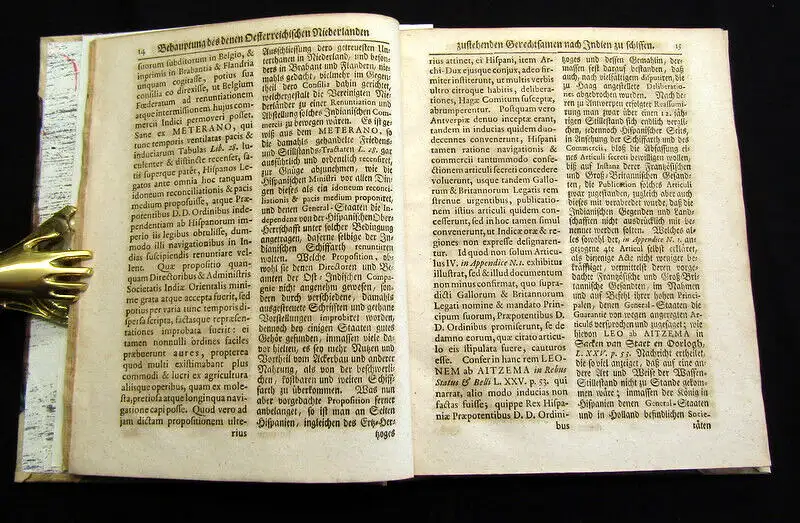 14 Behauptung des denen Oesterreichischen Niederlanden
suorum subditorum in Belgio, &
inprimis in Brabantia & Flandria
unquam cogitasse, potius sua
consilia eo direxisse, ut Belgium
Fœderatum ad renuntiationem
atque intermissionem hujus com-
mercii Indici permoveri posset.
Sane ex METERANO, qui
tunc temporis ventilatas pacis &
induciarum Tabulas Lib. 28. lu-
culenter & distincte recenset, sa-
tis superque patet, Hispanos Le-
gatos ante omnia hoc tanquam
idoneum reconciliationis & pacis
medium proposuisse, atque Præ-
potentibus D.D. Ordinibus inde-
pendentiam ab Hispanorum im-
perio iis legibus obtulisse, dum-
modo illi navigationibus in In-
dias suscipiendis renuntiare vel-
lent. Quæ propositio quan-
quam Directoribus & Administris
Societatis Indiæ Orientalis mini-
me grata atque accepta fuerit, sed
potius per varia tunc temporis di-
spersa scripta, factasque repræsen-
tationes improbata fuerit: ei
tamen nonnulli ordines faciles
præbuerunt aures, propterea
quod multi existimabant plus
commodi & lucri ex agricultura
aliisque operibus, quam ex mole-
sta, pretiosa atque longinqua navi-
gatione capi posse. Quod vero ad
jam dictam propositionem ulte-
rius
Ausschliessung dero getreuesten Un-
terthanen in Niederland, und beson-
ders in Brabant und Flandern, nie-
mahls gedacht, vielmehr im Gegen-
theil dero Consilia dahin gerichtet,
welchergestalt die Vereinigten Nie-
derländer zu einer Renuntiation und
Abstellung solches Indianischen Com-
mercii zu bewegen wären. Es ist ge-
wiß aus dem METERANO, so
die damahls gehandelte Friedens-
und Stillstands-Tractaten L. 28. gar
ausführlich und ordentlich recensiret,
zur Gnüge abzunehmen, wie die
Hispanischen Ministri vor allen Din-
gen dieses als ein idoneum reconci-
liationis & pacis medium proponiret,
und denen General-Staaten die In-
dependanz von der Hispanischen Ober-
Herrschafft unter solcher Bedingung
angetragen, daferne selbige der In-
dianischen Schiffarth renuntiren
wolten. Welche Proposition, ob-
wohl sie denen Directoren und Be-
amten der Ost-Indischen Compa-
gnie nicht angenehm gewesen, son-
dern durch verschiedene, damahls
ausgestreute Schrifften und gethane
Vorstellungen improbiret worden,
dennoch bey einigen Staaten gutes
Gehör gefunden, inmassen viele da-
vor hielten, es sey mehr Nutzen und
Vortheil vom Ackerbau und anderer
Nahrung, als von der beschwerlichen,
kostbaren und weiten Schiff-
farth zu überkommen. Was nun
aber vorgedachte Proposition ferner
anbelanget, so ist man an Seiten
Hispanien, ingleichen des Ertz-Her-
tzoges
zustehenden Gerechtsamen nach Indien zu schiffen. 15
rius attinet, ei Hispani, item Ar-
chi-Dux ejusque conjux, adeo fir-
miter institerunt, ut multis verbis
ultro citroque habitis, delibera-
tiones, Hagæ Comitum susceptæ,
abrumperentur. Postquam vero
Antverpiæ denuo inceptæ erant,
tandem in inducias quidem duo-
decennes convenerunt, Hispani
tamen ratione navigationis &
commercii tantummodo confe-
ctionem articuli secreti concedere
voluerunt, usque tandem Gallo-
rum & Britannorum Legatis rem
strenue urgentibus, publicatio-
nem istius articuli quidem con-
cesserunt, sed in hoc tamen simul
convenerunt, ut Indicæ oræ & re-
giones non expresse designaren-
tur. Id quod non solum Articu-
lus IV. in Appendice N. 1. exhibitus
illustrat, sed & illud documentum
non minus confirmat, quo supra-
dicti Gallorum & Britannorum
Legati nomine & mandato Prin-
cipum suorum, Præpotentibus D.
D. Ordinibus promiserunt, se de
damno eorum, quæ citato articu-
lo eis stipulata fuere, cauturos
esse. Confer in hanc rem LEO-
NEM ab AITZEMA in Rebus
Status & Belli L. XXV. p. 53. qui
narrat, alio modo inducias non
factas fuisse; quippe Rex Hispa-
niæ Præpotentibus D. D. Ordini-
bus
tzoges und dessen Gemahlin, der-
massen fest darauf bestanden, daß
auch, nach vielfältigen disputen, die
zu Haag angestellte Deliberatio-
nes abgebrochen wurden. Nach de-
ren zu Antwerpen erfolgter Reassumi-
rung man zwar über einen 12. jäh-
rigen Stillestand sich endlich vergli-
chen, jedennoch Hispanischer Seits,
in Ansehung der Schiffarth und des
Commercii, bloß die Abfassung ei-
nes Articuli secreti bewilligen wollen,
biß auf Instanz derer Frantzösischen
und Groß-Britannischen Gesand-
ten, die Publication solches Articuls
zwar zugestanden, zugleich aber auch
dieses mit verabredet wurde, daß die
Indianischen Gegenden und Land-
schafften nicht ausdrücklich mit be-
nennet werden solten. Welches al-
les sowohl der, in Appendice N. 1. an-
gezogene 4te Articul selbst erkläret,
als dienige Acte nicht weniger be-
kräfftiget, vermittelst deren vorge-
dachte Frantzösische und Groß-Bri-
tannische Gesandten, im Nahmen
und auf Befehl ihrer hohen Princi-
palen, denen General-Staaten die
Guarantie von wegen angeregten Ar-
ticuls versprochen und zugesaget; wie
hievon LEO ab AITZEMA in
Sacken van Staet en Oorlogh,
L. XXV. p. 53. Nachricht ertheilet,
die so viel anzeiget, daß auf eine an-
dere Art und Weise der Waffen-
Stillestand nicht zu Stande gekom-
men wäre; inmassen der König in
Hispanien denen General-Staaten
und in Holland befindlichen Socie-
täten